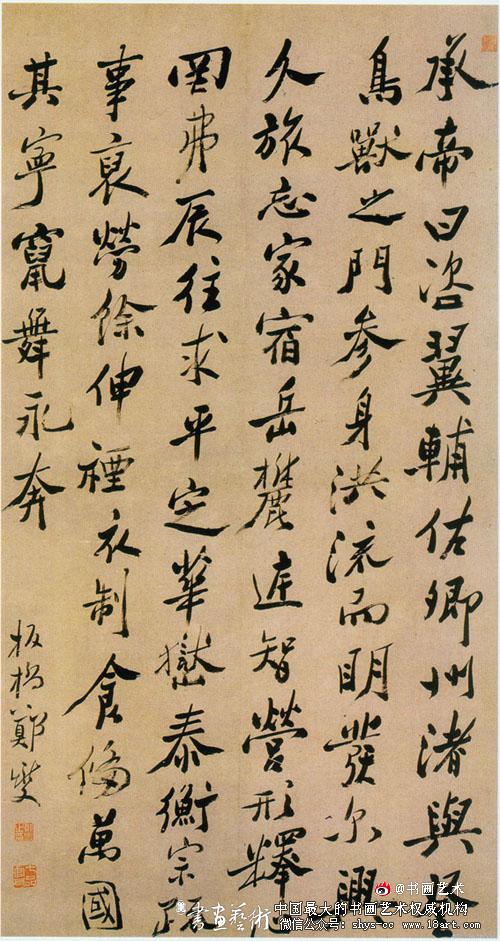 承帝曰咨翼輔佐卿州渚與登
鳥獸之門参身洪流而明發尔興
久旅忘家宿岳麓庭智營形釋
罔弗辰往求平定華嶽泰衡宗
事裒勞餘伸禋衣制食備萬國
其寧竄舞永奔
板橋鄭燮
@书画艺术
中国最大的书画艺术权威机构
微信公众号:shys-cc www.18art.com
書画藝術